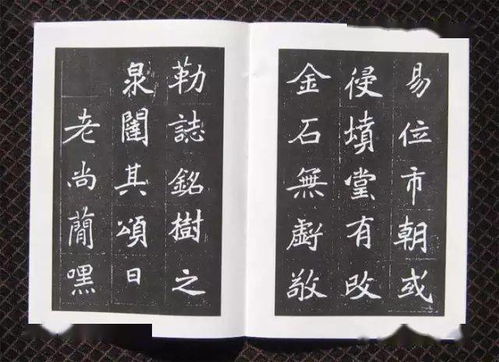 易位市朝或
侵墳堂有改
金石無虧敬
勒誌銘樹之
泉闥其頌曰
老尚蕳嘿